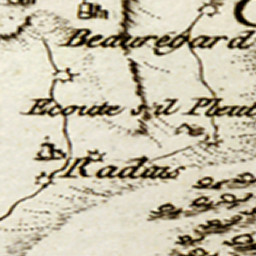 Beauregard
Ecoute s'il Pleut
Radius